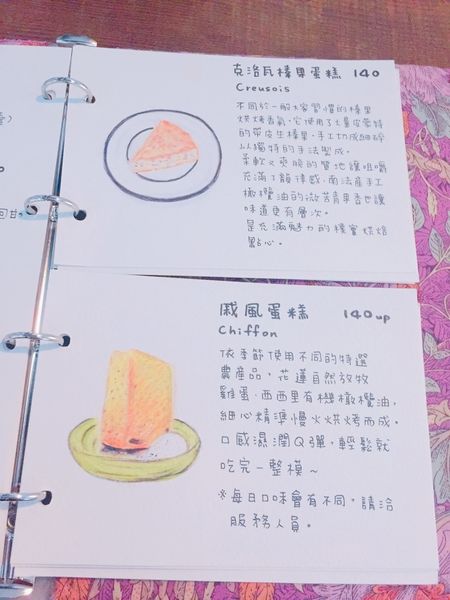 克洛瓦榛果蛋糕 140
Creusois
不同於一般大家習慣的榛果
烘烤香氣，它使用了大量皮蒙特
的帶皮生榛果，手工切成細碎
以獨特的手法製成。
柔軟又爽脆的質地讓咀嚼
充滿了韻律感，南法產手工
橄欖油的微苦青草香也讓
味道更有層次。
是充滿魅力的樸實烘焙
點心。
戚風蛋糕 140up
Chiffon
依季節使用不同的特選
農產品，花蓮自然放牧
雞蛋，西西里有機橄欖油，
細心精準慢火烘烤而成。
口感濕潤Q彈，輕鬆就
吃完一整模～
※每日口味會有不同，請洽
服務人員。